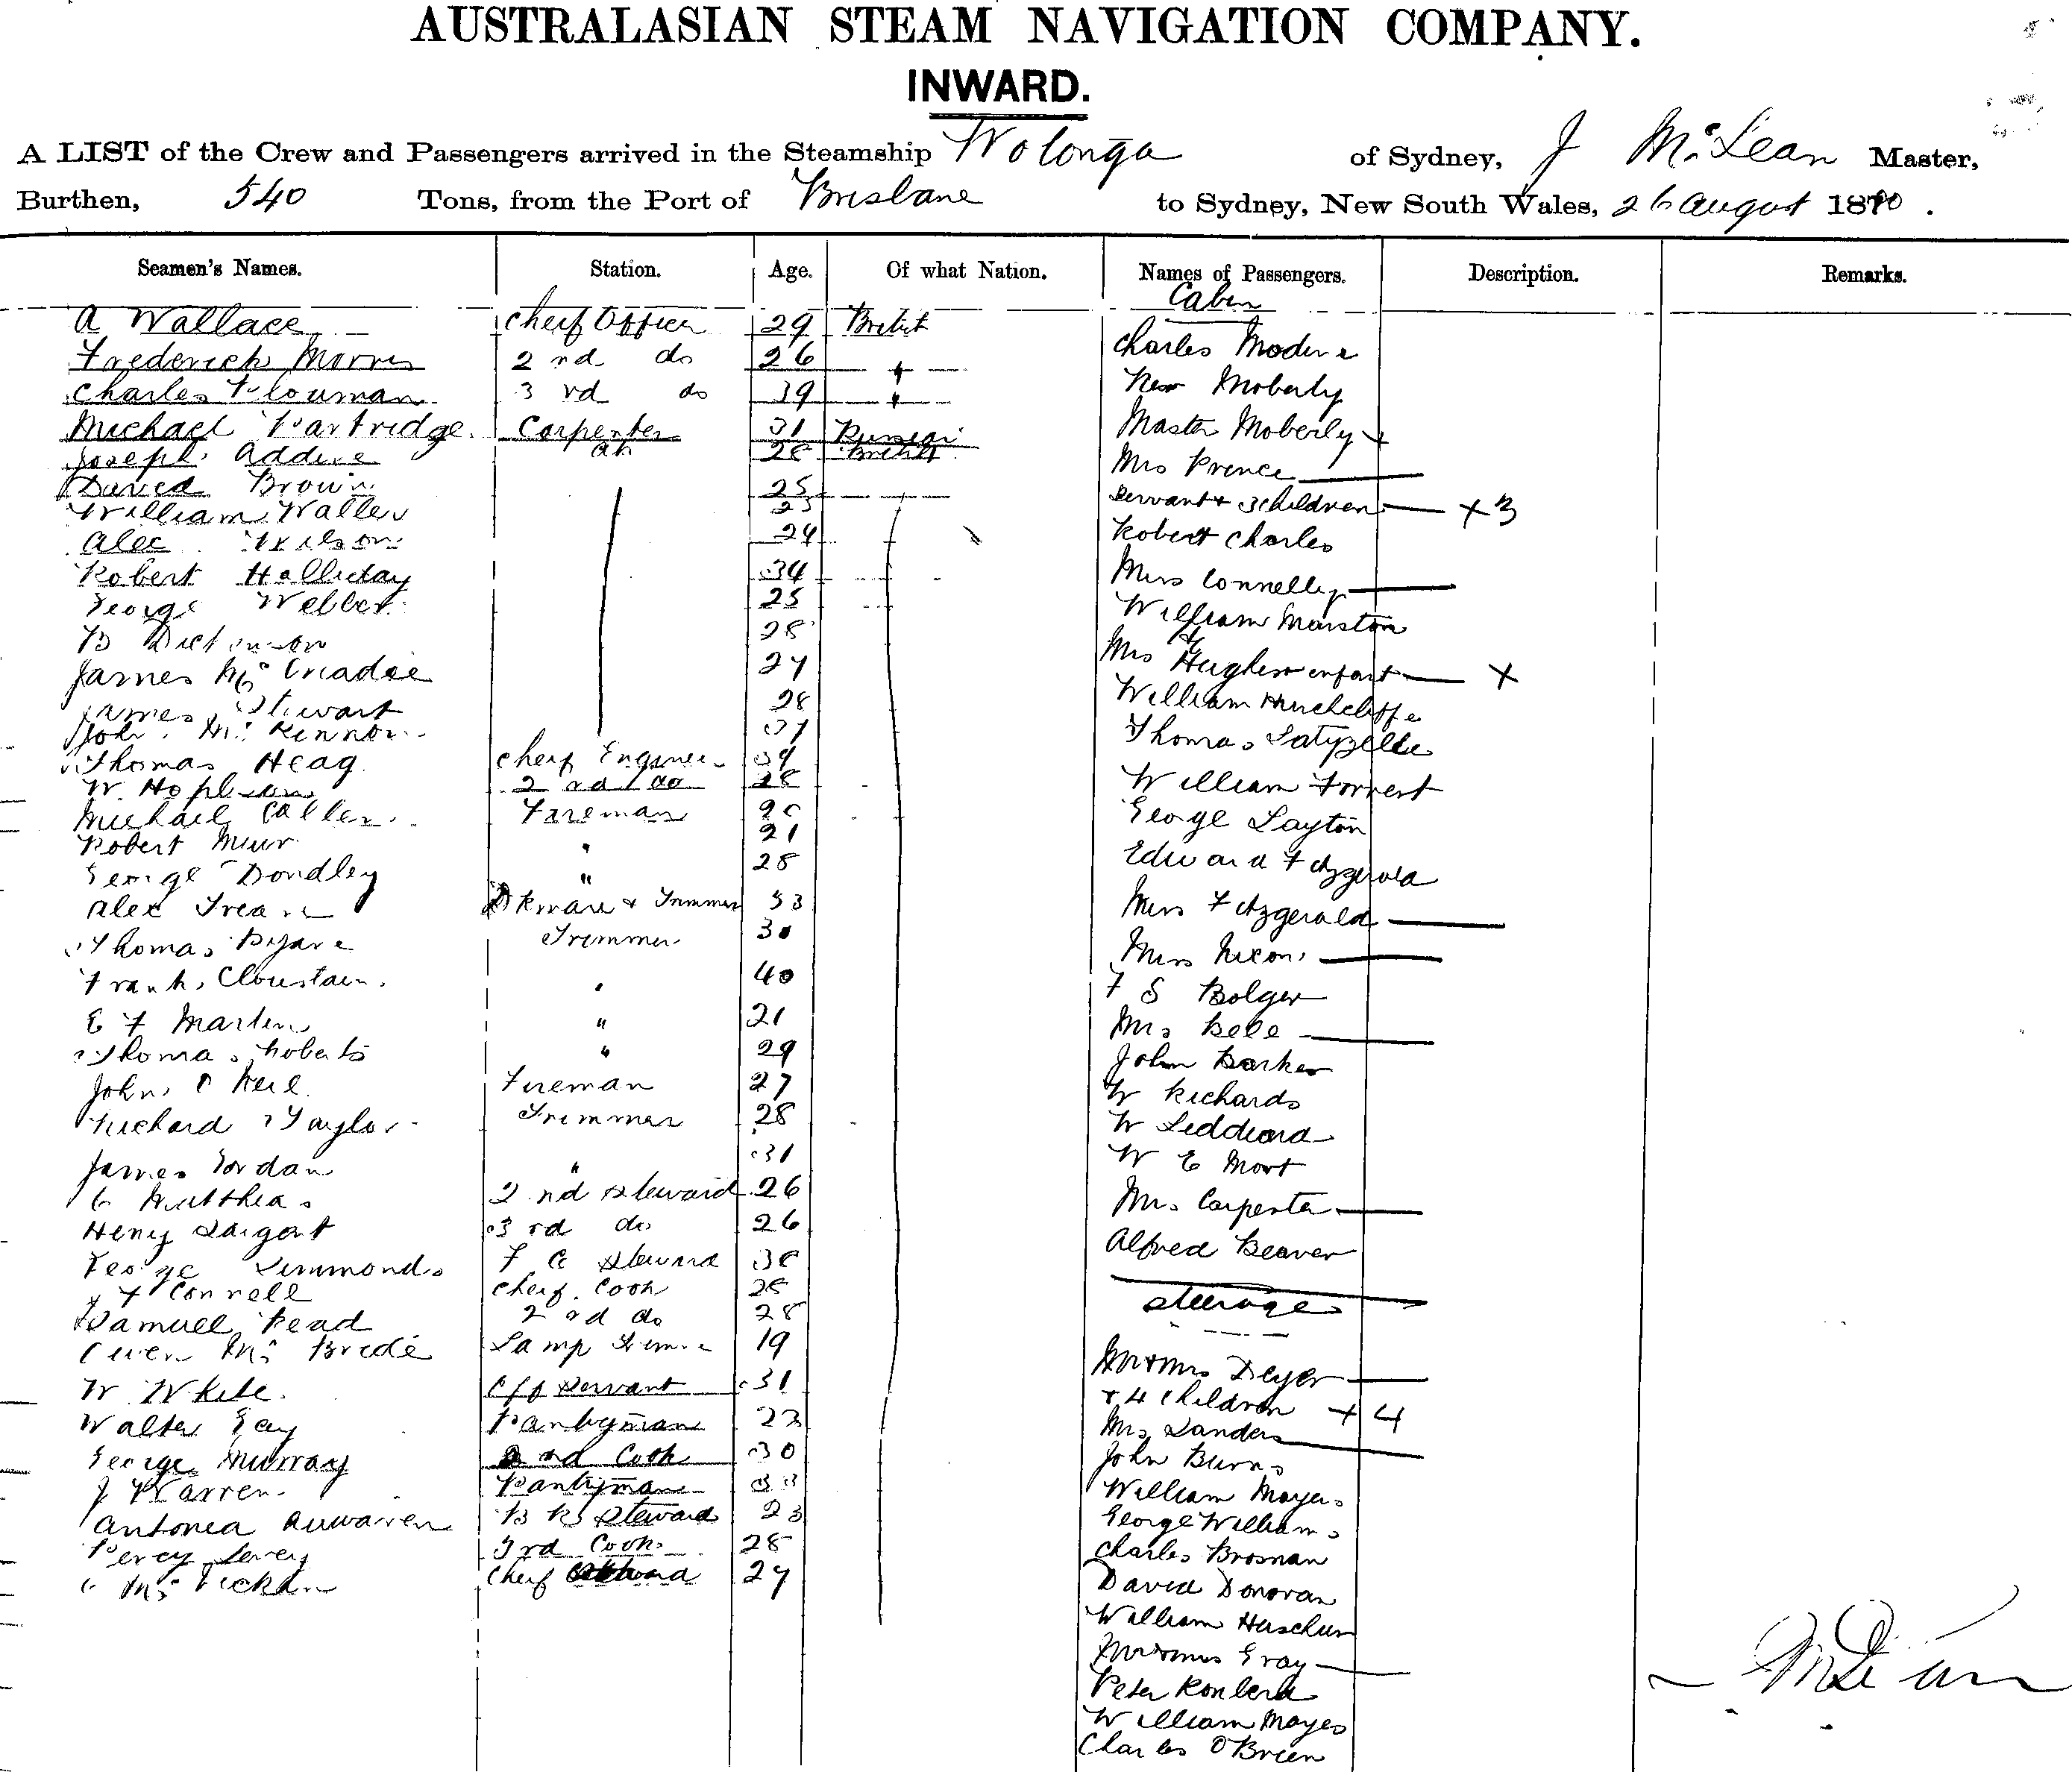 AUSTRALASIAN STEAM NAVIGATION COMPANY.
INWARD.
A LIST of the Crew and Passengers arrived in the Steamship Wolonga of Sydney, J McLean Master,
Burthen, 540 Tons, from the Port of Brisbane to Sydney, New South Wales, 26 August 18
Seamen's Names. Station. Age. Of what Nation. Names of Passengers. Description. Remarks.
Cabin
A Wallace Cheif Officer 29 British
Frederick Morris 2nd do 26
Charles 3rd do 39
Michael Partridge Carpenter 31
Joseph AB
David Brown 25
William Waller 23
Alec Wilson 24
Robert Halliday 34
George Webber 25
B 28
James Mc 27
James Stewart 28
John McKinnon 37
Thomas Heag Cheif Engineer 39
W. 2nd do 28
Michael Callen Fireman
Robert Muir " 21
George Dondley " 28
Alex & Trimmer 33
Thomas Trimmer 30
Frank Cloustain " 40
E F Martin " 21
Thomas Roberts " 29
John O Neil Fireman 27
Richard Taylor Trimmer 28
James Jordan " 31
C Matthias 2nd Steward 26
Heny Sargent 3rd do 26
George Simmonds F C Steward
F Connell Cheif Cook
Samuel Read 2nd do 28
Owen McBride Lamp 19
W White Off Servant 31
Walter Gay Pantryman 22
George Murray Cook 30
J Warren Pantryman 33
Antonea Steward 23
Percy 3rd Cook 28
C Mc Cheif 27
Charles
Moberly
Master Moberly
Mrs Prince
Servant & 3 Children + 3
Robert Charles
Miss Connelly
William Marston
Mrs Hughes infant +
William
Thomas
William Forrest
George Layton
Edward Fitzgerald
Miss Fitzgerald
Miss Nixon
F S Bolger
Mrs Bell
John Barker
W Richards
W Leddiard
W E Mort
Mrs Carpenter
Alfred Beaver
Steerage
Mr & Mrs Deyer
& 4 Children + 4
Mrs Sanders
John Burns
William Mayes
George Williams
Charles Brosnan
David Donovan
William
Mr & Mrs Gray
Peter
William Mayes
Charles O'Brien
McLean